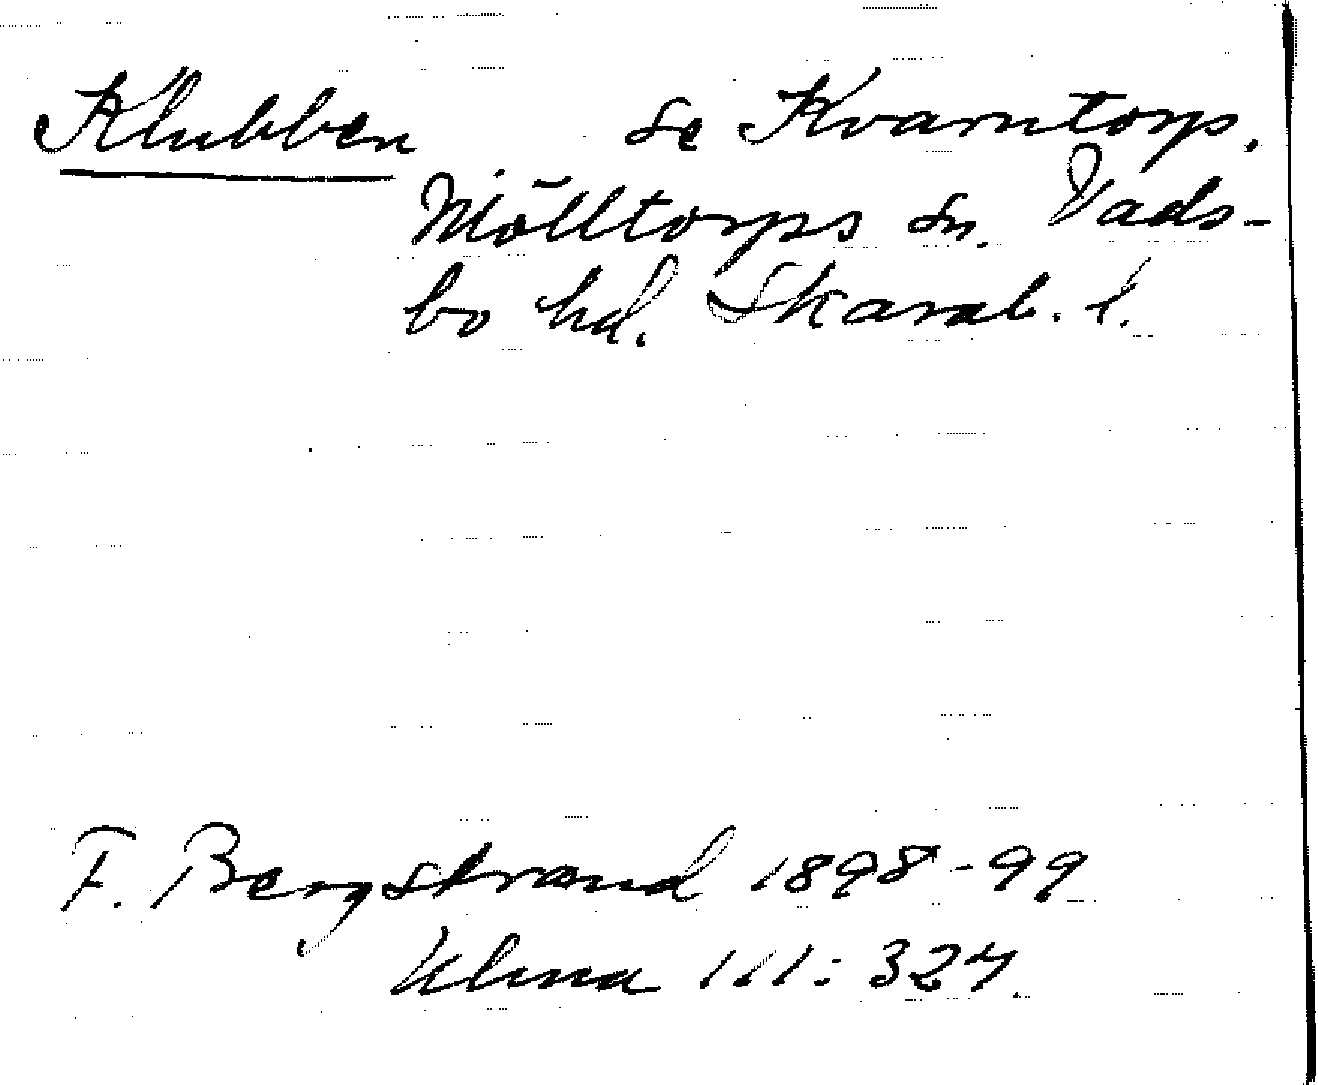 Klubben se Kvarntorp.
Mölltorps sn. Vads-
bo hd. Skarab. l.
F. Bergstrand 1898-99
111: 327.